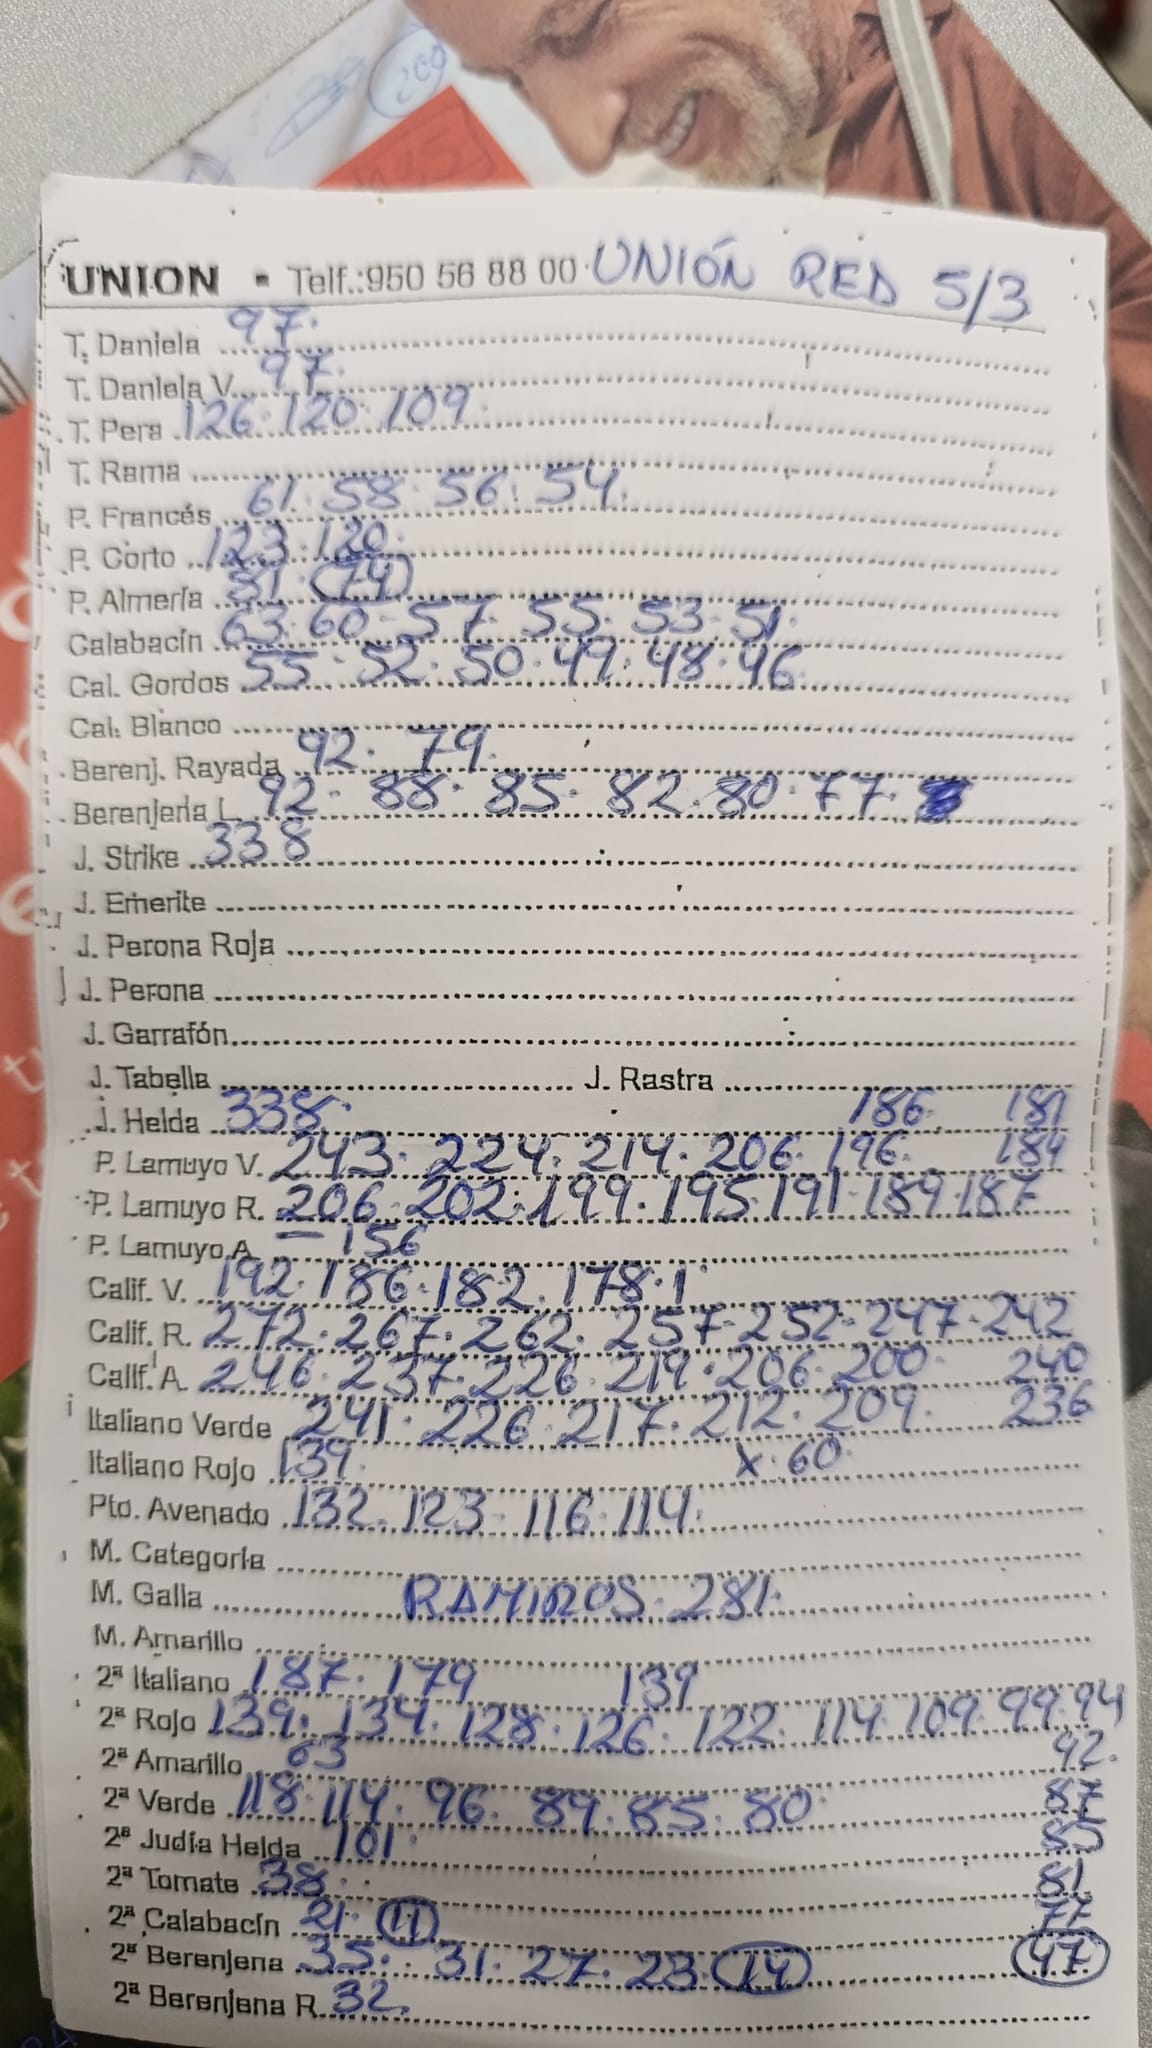 UNION - Telf.:950 56 88 00 UNIÓN RED 5/3
T. Daniela 97.
T. Daniela V. 97.
T. Pera 126. 120. 109.
T. Rama
P. Francés 61. 58. 56. 54.
P. Corto 123. 120.
P. Almería 81. (74)
Calabacín 63. 60- 57. 55. 53. 51.
Cal. Gordos 55. 52. 50. 49. 48. 46
Cal. Blanco
Berenj. Rayada 92. 79.
Berenjena L. 92. 88. 85. 82. 80. 77.
J. Strike 338
J. Emerite
J. Perona Roja
J. Perona
J. Garrafón
J. Tabella J. Rastra
J. Helda 338. 186.
P. Lamuyo V. 243. 224. 214. 206. 196. 184
P. Lamuyo R. 206. 202. 199. 195. 191. 189. 187
P. Lamuyo A. - 156
Calif. V. 192. 186. 182. 178. 1
Calif. R. 272. 267. 262. 257. 252. 247. 242
Calif. A. 246. 237. 226. 219. 206. 200. 240
Italiano Verde 241. 226. 217. 212. 209. 236
Italiano Rojo 139. X. 60.
Pto. Avenado 132. 123. 116. 114.
M. Categoría
M. Galia RAMIROS. 281.
M. Amarillo
2ª Italiano 187. 179 139
2ª Rojo 139. 134. 128. 126. 122. 114. 109. 99. 94
2ª Amarillo 63 92.
2ª Verde 118. 114. 96. 89. 85. 80. 87
2ª Judía Helda 101. 85
2ª Tomate 38. 81
2ª Calabacín 21. (11) 77
2ª Berenjena 35. 31. 27. 23. (14) (47)
2ª Berenjena R. 32.